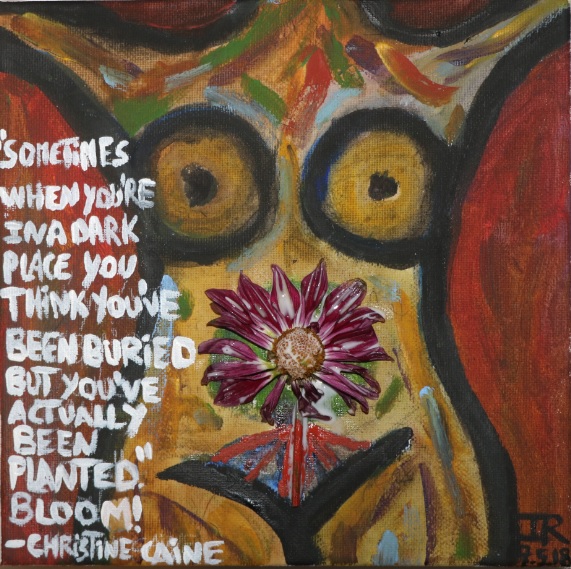 "SOMETIMES
WHEN YOU'RE
IN A DARK
PLACE YOU
THINK YOU'VE
BEEN BURIED
BUT YOU'VE
ACTUALLY
BEEN
PLANTED."
BLOOM!
-CHRISTINE CAINE
JR
7.5.18